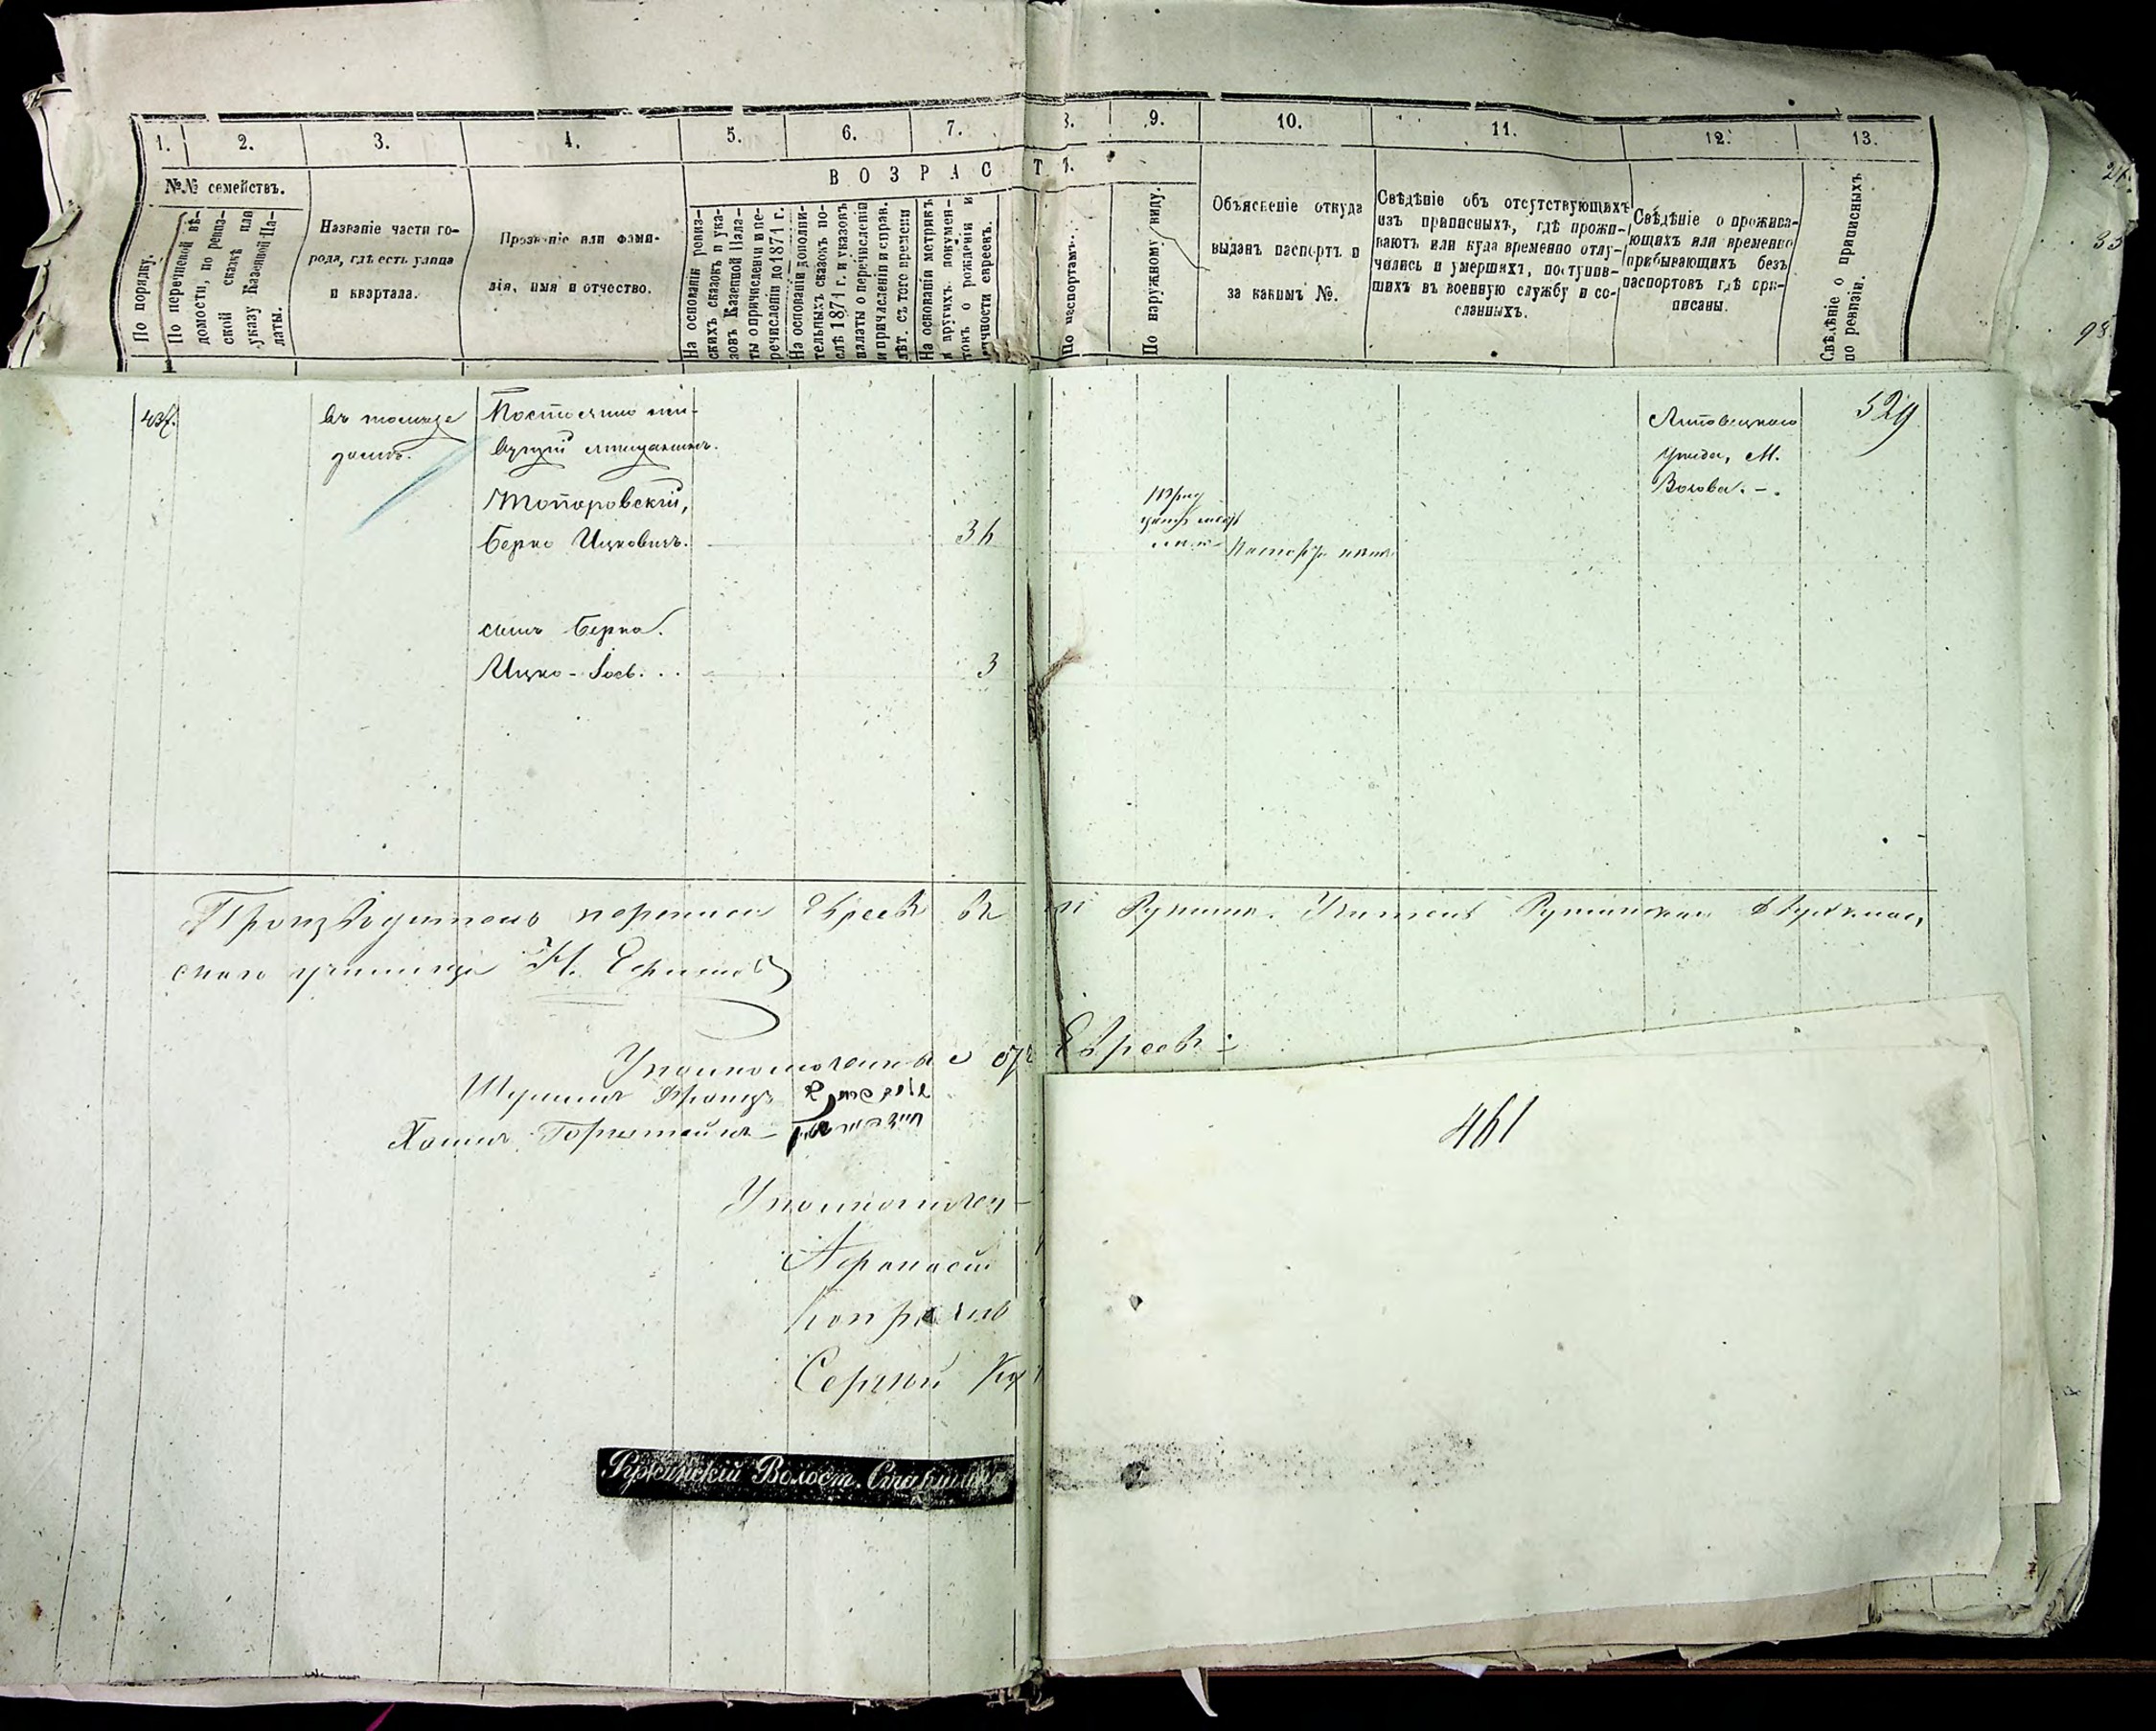 1.
2.
3.
4.
5.
6.
7.
8.
9.
10.
11.
12.
13.
№№ семействъ.
ВОЗРАСТЪ.
По порядку.
По перечневой вѣ-
домости, по ревиз-
ской сказкѣ или
указу Казенной Па-
латы.
Названіе части го-
рода, гдѣ есть улица
и квартала.
Прозваніе или фами-
лія, имя и отчество.
На основаніи ревиз-
скихъ сказокъ и ука-
зовъ Казенной Пала-
ты о причисленіи и пе-
речисленіи до 1871 г.
На основаніи дополни-
тельныхъ сказокъ по-
слѣ 1871 г. и указовъ
палаты о перечисленіи
и причисленіи и справ.
лѣт. съ того времени
На основаніи метрикъ
и другихъ докумен-
товъ о рожденіи и
личности евреевъ.
По паспортамъ.
По наружному виду.
Объясненіе откуда
выданъ паспортъ и
за какимъ №.
Свѣдѣніе объ отсутствующихъ
изъ приписныхъ, гдѣ прожи-
ваютъ или куда временно отлу-
чились и умершихъ, поступив-
шихъ въ военную службу и со-
сланныхъ.
Свѣдѣніе о прожива-
ющихъ или временно
прибывающихъ безъ
паспортовъ гдѣ при-
писаны.
Свѣдѣніе о приписныхъ
по ревизіи.
437.
въ томъ же
домѣ.
Постоянно жи-
вущій мѣщанинъ.
Топоровскій,
Берко Ицковичъ.
36
Липовецкаго
уѣзда, М.
529
сынъ Берка.
Ицко-Іось...
3
Производитель переписи Евреевъ въ м. Ружинѣ. Учитель Ружинскаго двухклас,
снаго училища Н.
Уполномоченные отъ Евреевъ:
Шулимъ
Хаимъ Горнштейнъ
Уполномочен
Афанасій
Сергѣй
Ружинскій Волост. Старшина
461